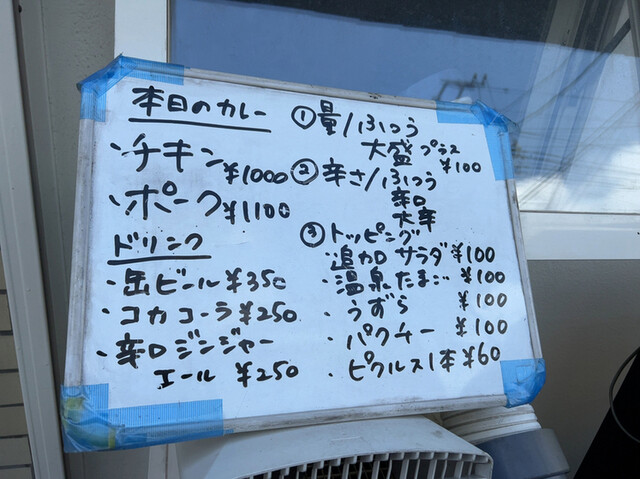 本日のカレー
・チキン ¥1000
・ポーク ¥1100
ドリンク
・缶ビール ¥350
・コカコーラ ¥250
・辛口ジンジャー
エール ¥250
①量/ふつう
大盛プラス
¥100
②辛さ/ふつう
辛口
大辛
③トッピング
・追加サラダ ¥100
・温泉たまご ¥100
・うずら ¥100
・パクチー ¥100
・ピクルス1本 ¥60